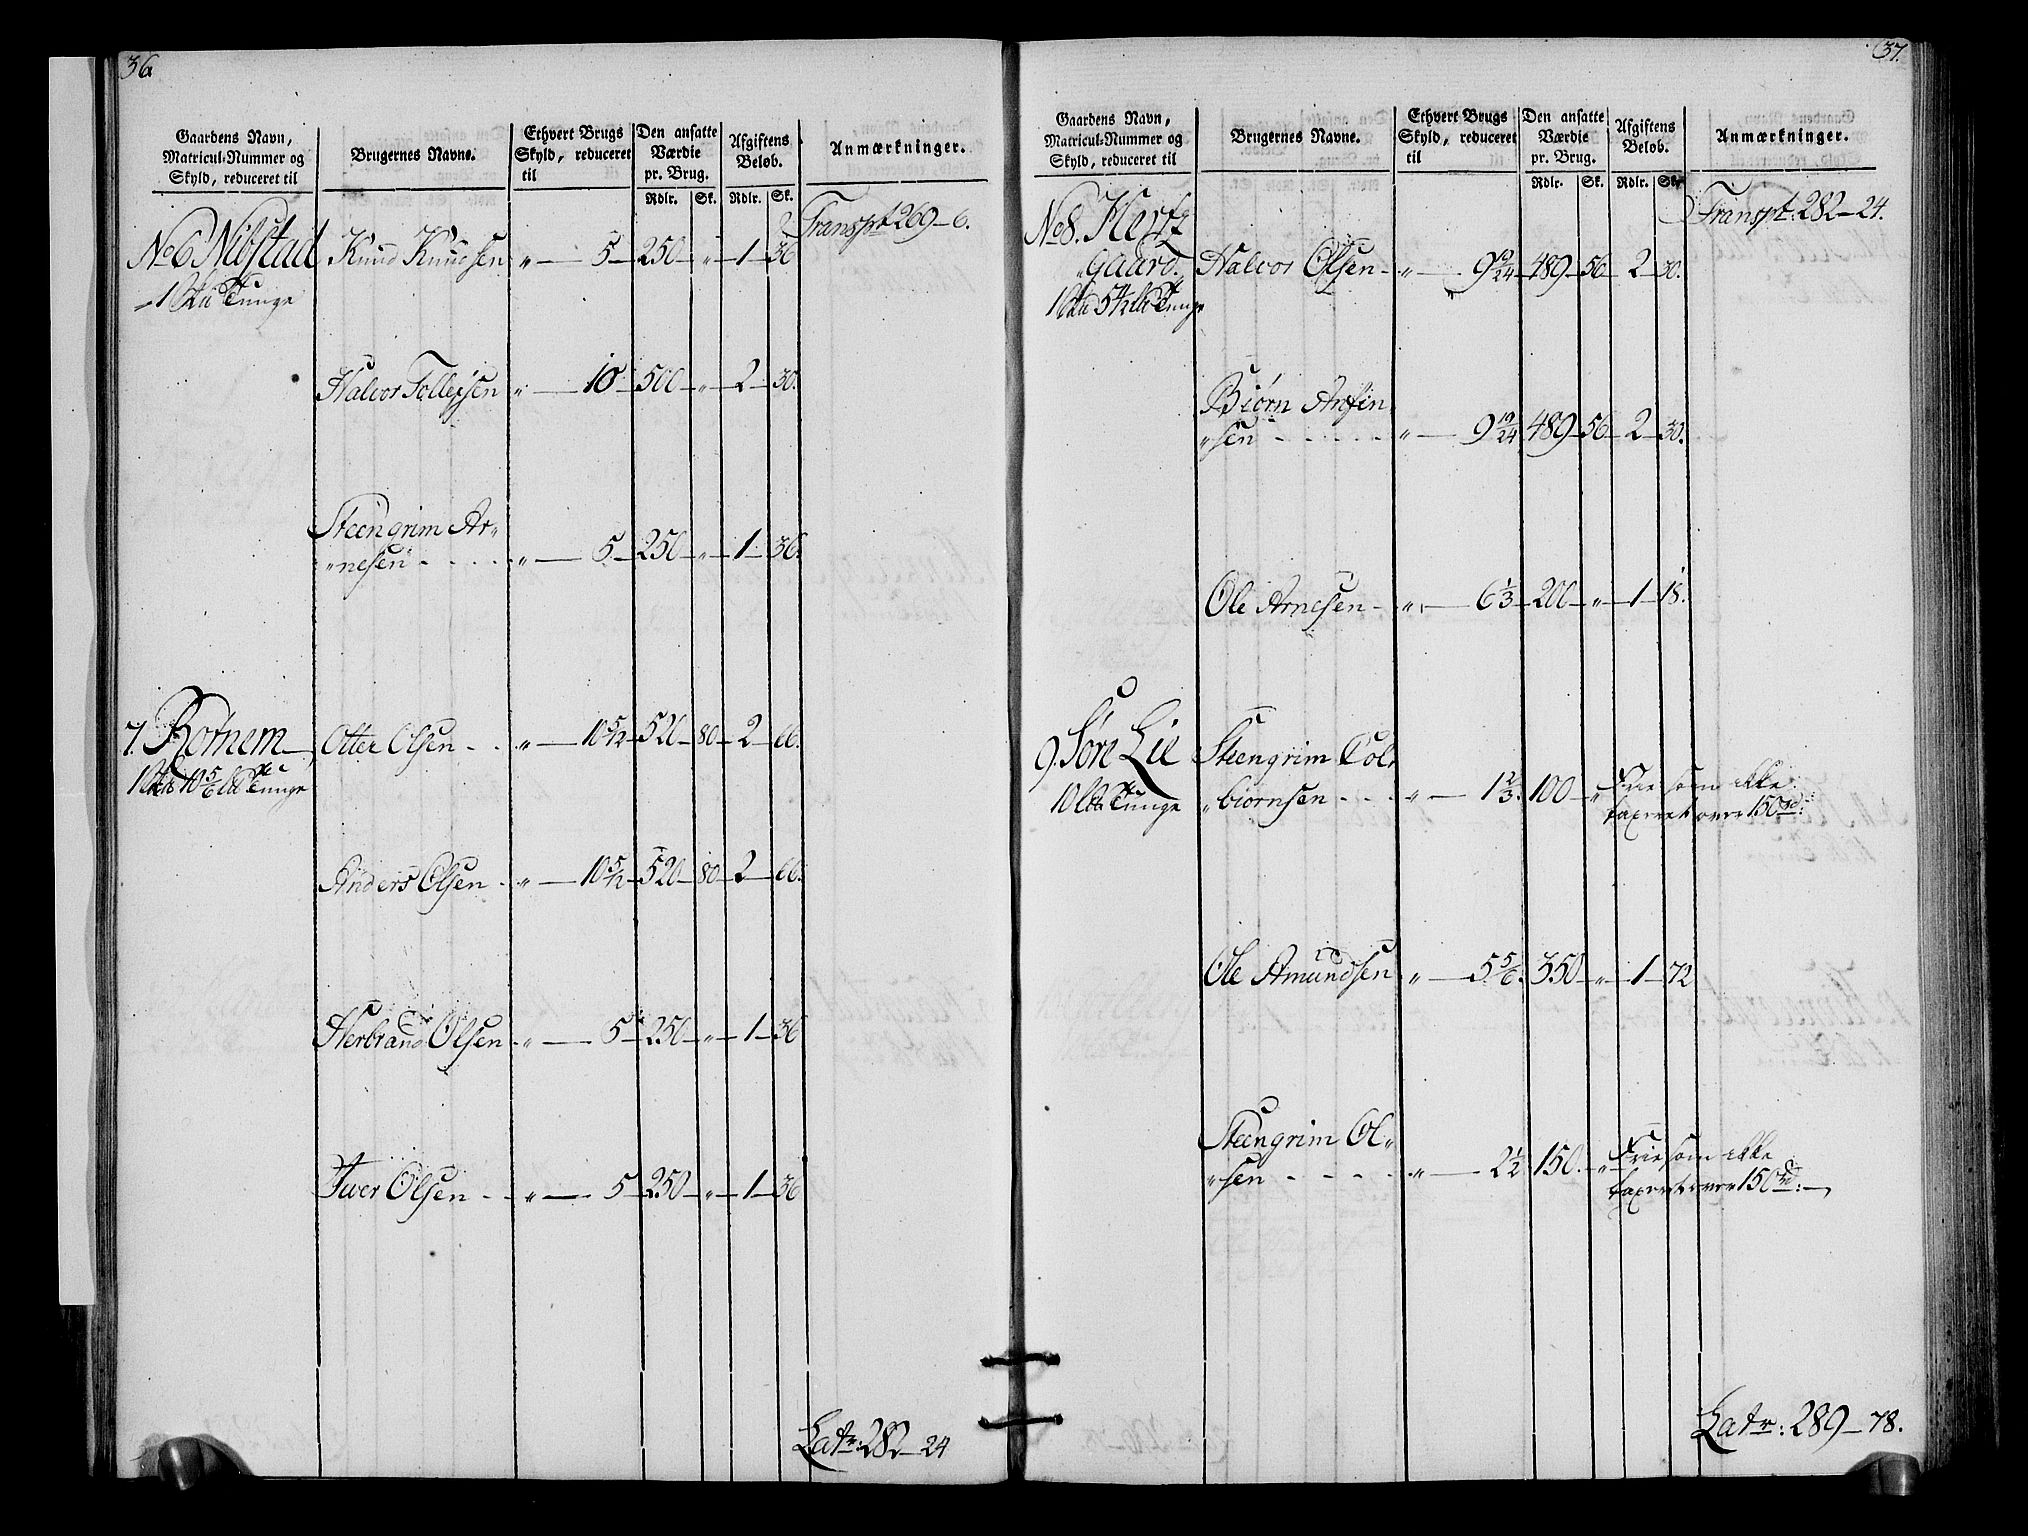 36
Gaardens Navn, Matricul-Nummer og Skyld, reduceret til
Brugernes Navne.
Ethvert Brugs Skyld, reduceret til
Den ansatte Værdie pr. Brug.
Afgiftens Beløb.
Anmærkninger.
Rdlr. Sk. Rdlr. Sk.
Transpt 269 – 6.
No 6 Nibstad Knud Knudsen „ — 5 – 250 – „ – 1 – 36
1 Tunge
Halvor Tollefsen „ — 10 – 500 – „ – 2 – 30.
Steengrim Ar„
„nesen „ — 5 – 250 – „ – 1 – 36.
7. Rotnem Otter Olsen „ — 10 5/12 – 520 – 80 – 2 – 66.
1 10 5/6 Tunge
Anders Olsen „ — 10 5/12 – 520 – 80 – 2 – 66.
Herbrand Olsen „ — 5 – 250 – „ – 1 – 36
Iver Olsen „ — 5 – 250 – „ – 1 – 36
Latr: 282 – 24
37.
Gaardens Navn, Matricul-Nummer og Skyld, reduceret til
Brugernes Navne.
Ethvert Brugs Skyld, reduceret til
Den ansatte Værdie pr. Brug.
Afgiftens Beløb.
Anmærkninger.
Rdlr. Sk. Rdlr. Sk.
Transpt: 282 – 24.
No 8.
„gaard. Halvor Olsen „ — 9 19/24 – 489 – 56 – 2 – 30.
1 5 1/2 Tunge
Biørn Anfin„
„sen „ — 9 19/24 – 489 – 56 – 2 – 30.
Ole Arnesen „ — 6 1/3 – 200 – „ – 1 – 18.
9. Søre Lie Steengrim Col„
10 Tunge „biørnsen „ — 1 2/3. 100 – „ Frie som ikke
taxeret over 150 rd:
Ole Amundsen „ — 5 5/6. 350 – „ – 1 – 72
Steengrim Ol„
„sen „ — 2 1/2 150. – „ Frie som ikke
taxeret over 150 rd:
Latr: 289 – 78.